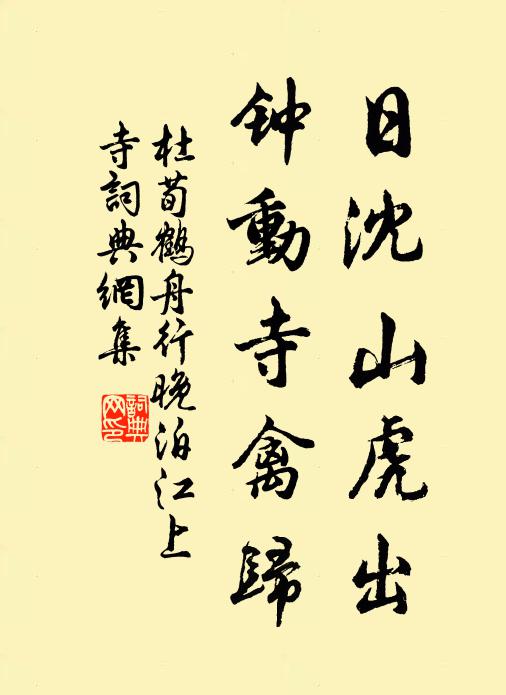 日沈山虎出
钟動寺禽歸
杜荀鶴舟行晚泊江上
寺詞典網集
詞典网印